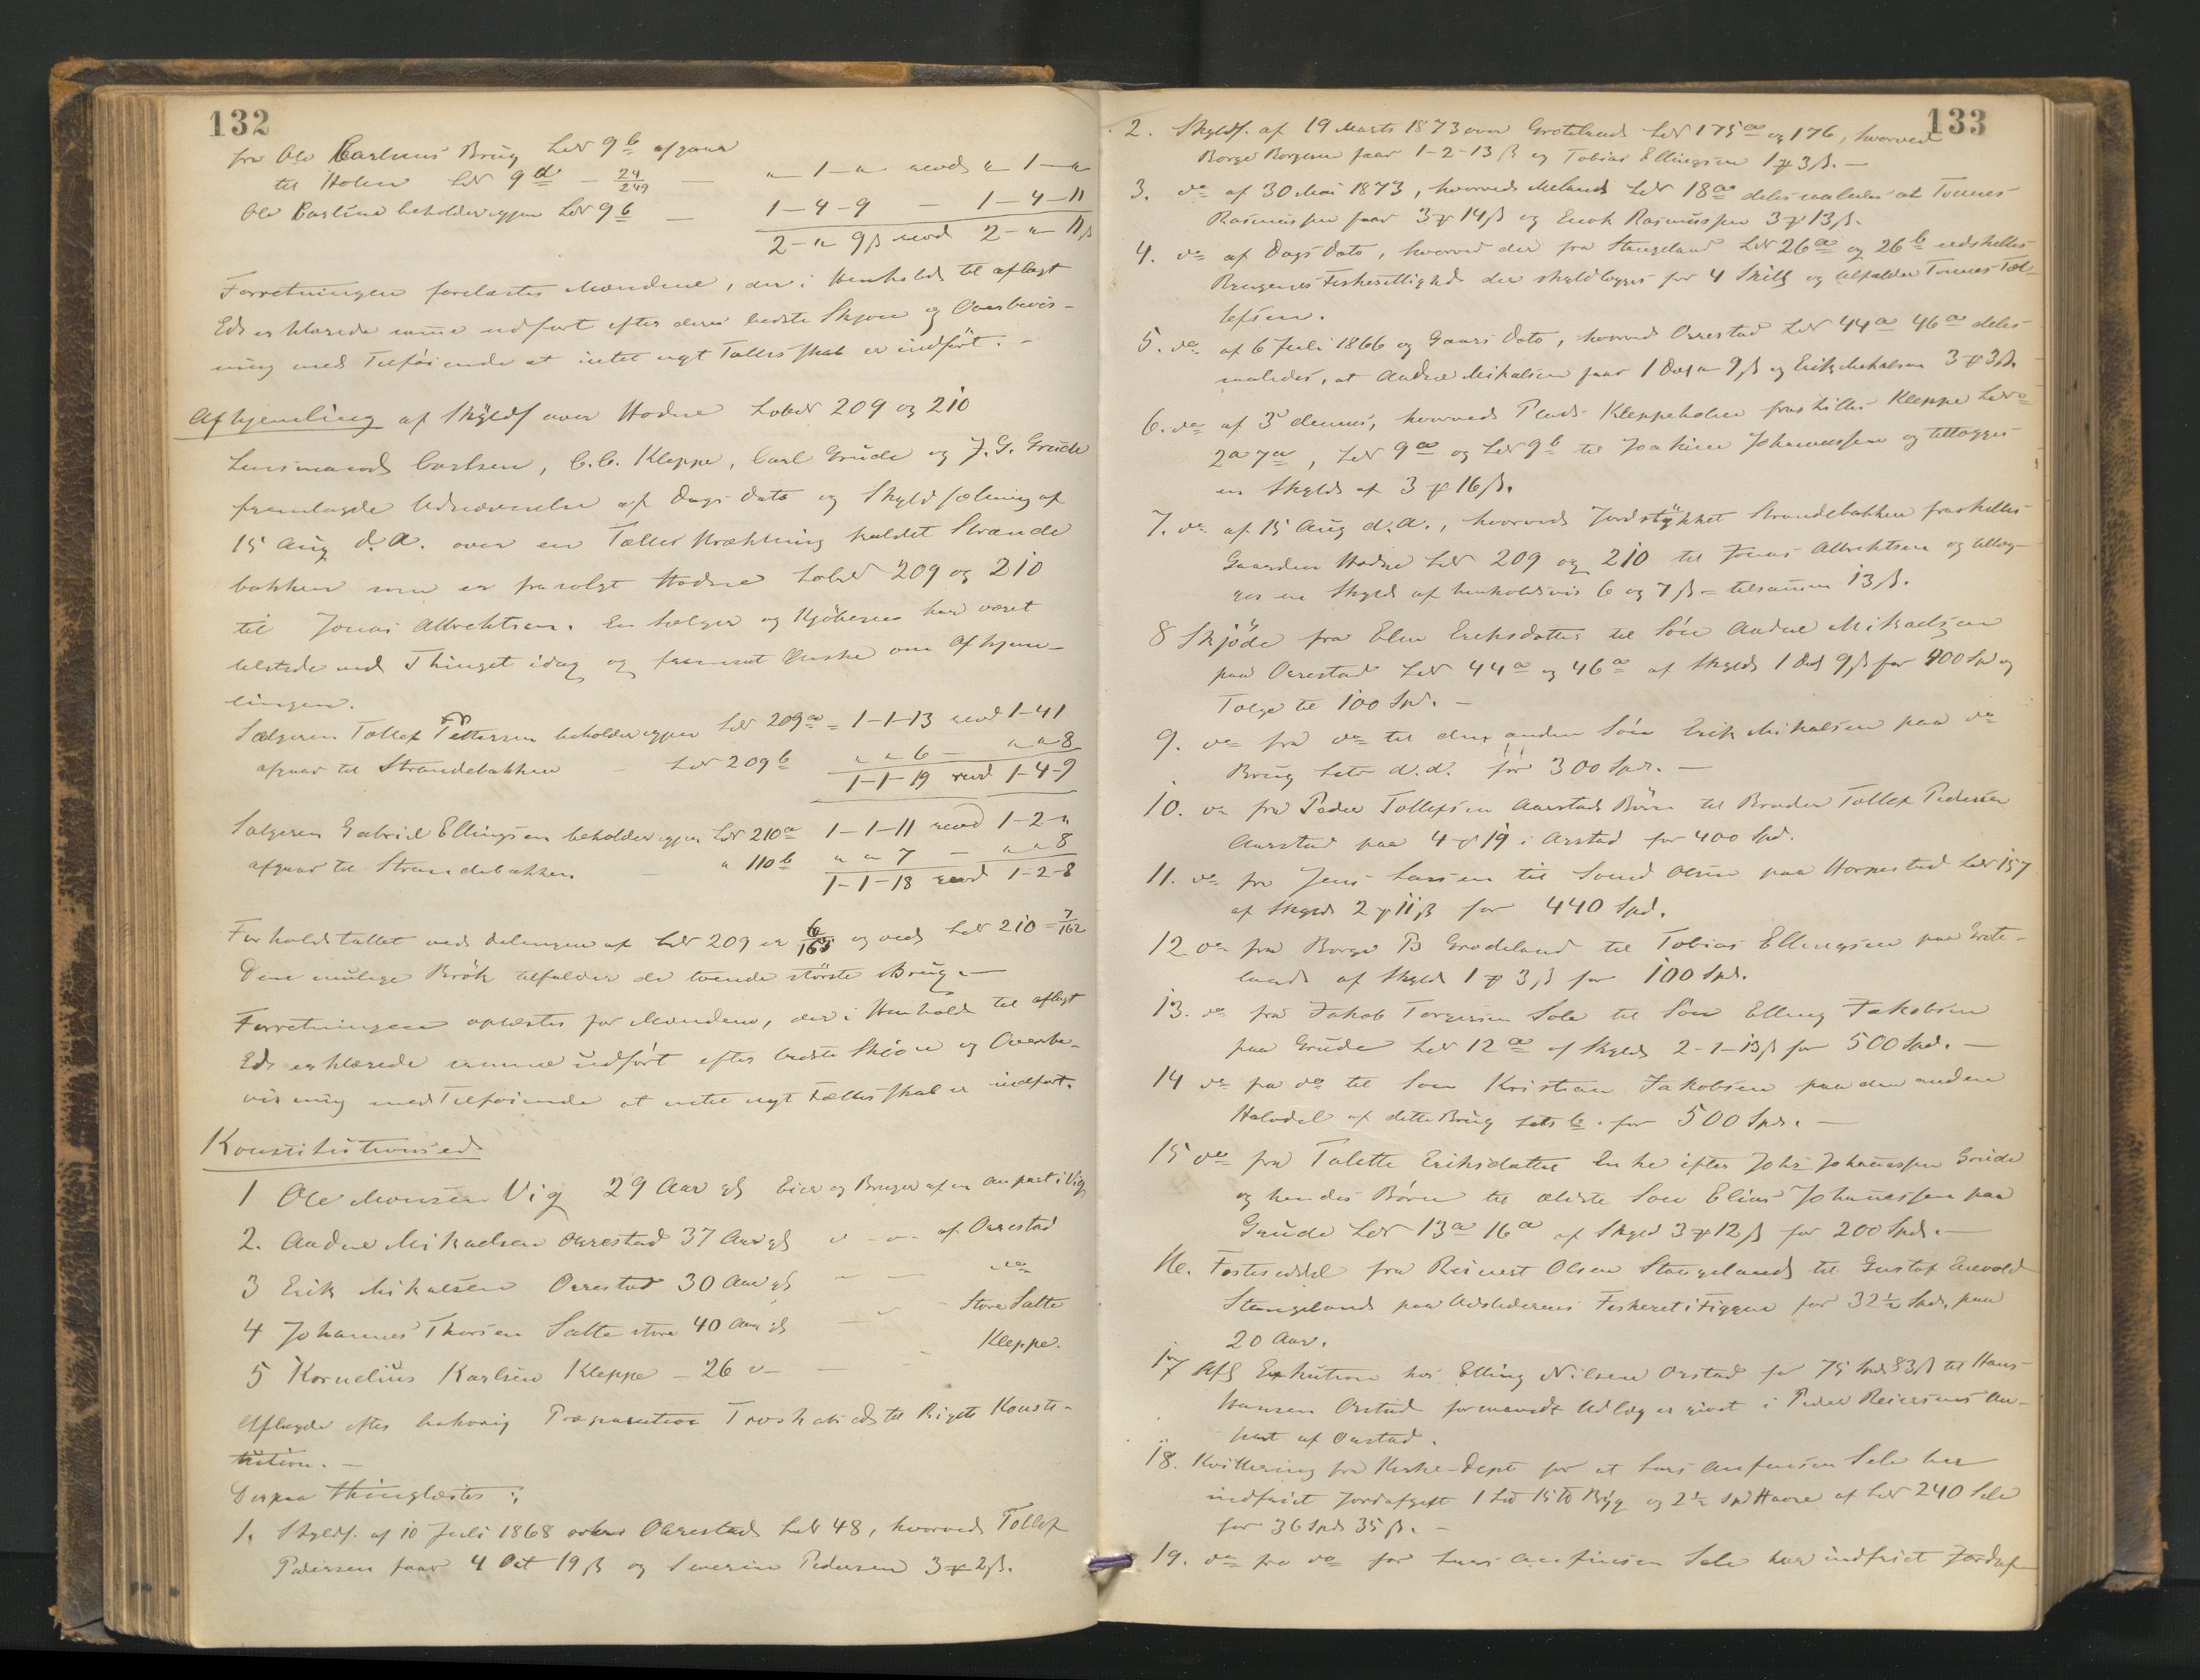 132
fra Ole Carlsens Brug Lb№ 9b afgaar
til Holen Lb№ 9d – 24/249 – " 1 – " mod " 1 – "
Ole Carlsen beholder igjen Lb№ 9b – 1–4–9 – 1–4–11
2–" 9ß mod 2–" 11ß
Forretningen forelæstes Mændene, der i Henhold til aflagt
Ed erklærede samme udført efter deres bedste Skjøn og Overbevis-
ning med Tilføiende at intet nyt Fællesskab er indført. –
Afhjemling af Skyldf over Hodne Lob№ 209 og 210
Lensmand Carlsen, C.C. Kleppe, Carl Grude og J.G. Grude
fremlagde Udnævnelse af Dags Dato og Skyldsætning af
15 Aug d.A. over en Fælles Strækning kaldet Strande
bakken som er frasolgt Hodne Lob№ 209 og 210
til Jonas Albrektsen. En Sælger og Kjøberen har været
tilstede ved Thinget idag og fremsat Ønske om Afhjem-
lingen.
Sælgeren Tollef Pedersen beholder igjen Lb№ 209a = 1–1–13 mod 1–41
afgaar til Strandebakken – Lb№ 209b " " 6 – " " 8
1–1–19 mod 1–4–9
Sælgeren Gabriel Ellingsen beholder igjen Lb№ 210a 1–1–11 mod 1–2–"
afgaar til Strandebakken – " 110b " " 7 – " " 8
1–1–18 mod 1–2–8
Forholdstallet ved delingen af Lb№ 209 er 6/163 og ved Lb№ 210 = 7/162
Den mulige Brøk tilfalder de tvende største Brug. –
Forretningen oplæstes for Mændene, der i Henhold til aflagt
Ed erklærede samme udført efter bedste Skjøn og Overbe-
visning med Tilføiende at intet nyt Fællesskab er indført.
Konstitutionsed
1 Ole Monsen Vig 29 Aar gl Eier og Bruger af en Anpart i Vig
2. Andne Mikaelsen Orrestad 37 Aar gl " – " – af Orrestad
3 Erik Mikalsen Orrestad 30 Aar gl – – do
4 Johannes Thorsen Salte store 40 Aar gl – – Store Salte
5 Kornelius Karlsen Kleppe – 26 " – – Kleppe.
Aflagde efter behørig Præparation Troskabsed til Rigets Konsti-
tution. –
Derpaa thinglæstes:
1. Skyldf. af 10 Juli 1868 over Orrestad Lb№ 48, hvorved Tollef
Pedersen faar 4 Ort 19 ß og Severin Pedersen 3 Ort 2 ß.
133
2. Skyldf. af 19 Marts 1873 over Groteland Lb№ 175a og 176, hvorved
Borge Borgesen faar 1–2–13 ß og Tobias Ellingsen 1 Ort 3 ß. –
3. do af 30 Mai 1873, hvorved Meland Lb№ 18a deles saaledes at Tonnes
Rasmussen faar 3 Ort 14 ß og Enok Rasmussen 3 Ort 13 ß.
4. do af Dags Dato, hvorved der fra Stangeland Lb№ 26a og 26b udskilles
Brugenes Fiskerettighed der skyldlægges for 4 Skill og tilfalder Tonnes Tol-
lefsen.
5. do af 6 Juli 1866 og Gaars Dato, hvorved Orrestad Lb№ 44a 46a deles
saaledes, at Andne Mikalsen faar 1 Dal " 9 ß og Erik Mikalsen 3 Ort 3 ß.
6. do af 3 dennes, hvorved Plads Kleppeholen fraskilles Kleppe Lb№
2a 7a, Lb№ 9a og Lb№ 9b til Joakim Johannessen og tillægges
en Skyld af 3 Ort 16 ß.
7. do af 15 Aug d.A., hvorved Jordstykket Strandebakken fraskilles
Gaarden Hodne Lb№ 209 og 210 til Jonas Albrektsen og tillæg-
ges en Skyld af henholdsvis 6 og 7 ß = tilsammen 13 ß.
8 Skjøde fra Elen Eriksdatter til Søn Andne Mikaelsen
paa Orrestad Lb№ 44a og 46a af Skyld 1 Dal 9 ß for 400 Spd og
Følge til 100 Spd. –
9. do fra do til den anden Søn Erik Mikalsen paa do
Brug Litr d.d. for 300 Spd. –
10. do fra Peder Tollefsen Aarstads Børn til Broder Tollef Pedersen
Aarstad paa 4 Ort 19 i Arstad for 400 Spd.
11. do fra Jens Larsen til Svend Olsen paa Horpestad Lb№ 157
af Skyld 2 Ort 11 ß for 440 Spd.
12. do fra Borge B Grodeland til Tobias Ellingsen paa Grote-
land af Skyld 1 Ort 3 ß for 100 Spd.
13. do fra Jakob Torgersen Sola til Søn Elling Jakobsen
paa Grude Lb№ 12a af Skyld 2–1–13 ß for 500 Spd. –
14 do fra do til Søn Kristian Jakobsen paa den anden
Halvdel af dette Brug Litr b. for 500 Spd. –
15 do fra Talette Eriksdatter Enke efter Johs Johannessen Grude
og hendes Børn til ældste Søn Elias Johannessen paa
Grude Lb№ 13a 16a af Skyld 3 Ort 12 ß for 200 Spd. –
16. Festeseddel fra Reinert Olsen Stangeland til Gustaf Enevold
Stangeland paa Udstederens Fiskeret i Figgen for 32½ Spd, paa
20 Aar.
17 Afh Exekution hos Elling Nilsen Orstad for 75 Spd 83 ß til Hans
Hansen Orstad formaneds Udlæg er givet i Peder Reiersens An-
part af Orstad.
18. Kvittering fra Kirke-Dept for at Lars Anfinsen Sele har
indfriet Jordafgift 1 Td 15 ℔ Byg og 2½ Spd Havre af Lb№ 240 Sele
for 36 Spd 35 ß. –
19. do fra do for Lars Anfinsen Sele har indfriet Jordaf-